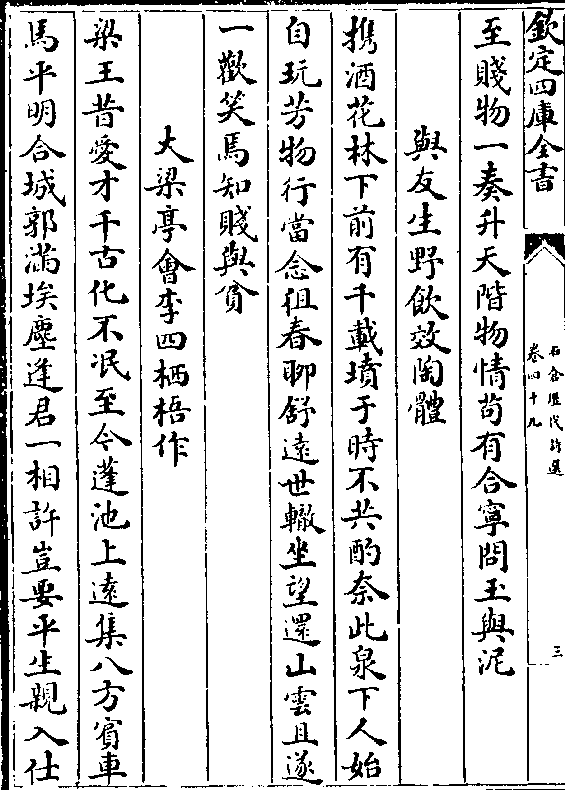 欽定四庫全書
石倉歷代詩選
卷四十九
三
至賤物一奏升天階物情苟有合寧問玉與泥
與友生野飲效陶體
携酒花林下前有千載墳于時不共酌奈此泉下人始
自玩芳物行當念徂春聊舒遠世轍坐望還山雲且遂
一歡笑焉知賤與貧
大梁亭會李四栖梧作
梁王昔愛才千古化不泯至今蓬池上遠集八方賓車
馬平明合城郭滿埃塵逢君一相許豈要平生親入仕